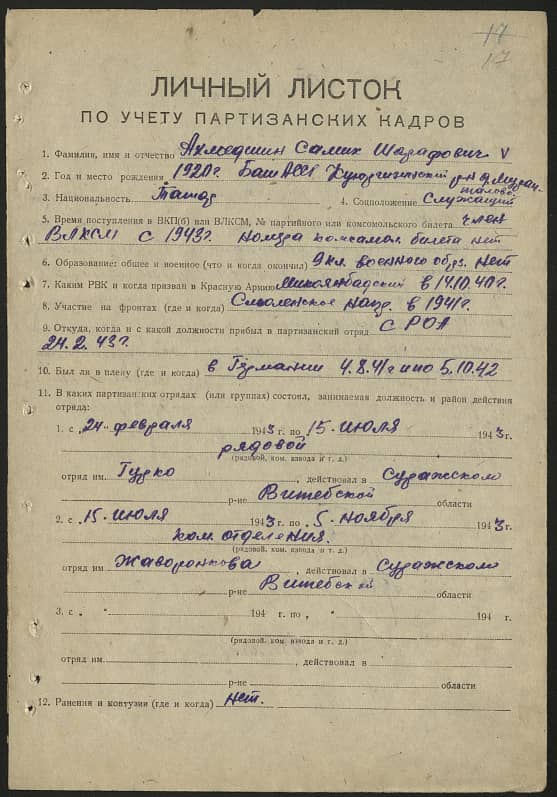 17
17
ЛИЧНЫЙ ЛИСТОК
ПО УЧЕТУ ПАРТИЗАНСКИХ КАДРОВ
1. Фамилия, имя и отчество Ахмедшин Самих Шарафович V
2. Год и место рождения 1920 г. БашАССР Куюргазинский р-н д. Мурап-
талово
3. Национальность Татар 4. Соцположение Служащий
5. Время поступления в ВКП(б) или ВЛКСМ, № партийного или комсомольского билета член
ВЛКСМ с 1943 г. номера комсомол. билета нет
6. Образование: общее и военное (что и когда окончил) 9 кл. военного обр. нет
7. Каким РВК и когда призван в Красную Армию Микоянбадский в 14.10.40 г.
8. Участие на фронтах (где и когда) Смоленское напр. в 1941 г.
9. Откуда, когда и с какой должности прибыл в партизанский отряд с РОА
24.2.43 г.
10. Был ли в плену (где и когда) в Германии 4.8.41 г и по 5.10.42
11. В каких партизанских отрядах (или группах) состоял, занимаемая должность и район действия
отряда:
1. с 24 февраля 1943 г. по 15 июля 1943 г.
рядовой
(рядовой, ком. взвода и т. д.)
отряд им. Гурко, действовал в Суражском
р-не Витебской области
2. с 15 июля 1943 г. по 5 ноября 1943 г.
ком отделения.
(рядовой, ком. взвода и т. д.)
отряд им. Жаворонкова, действовал в Суражском
р-не Витебской области
3. с 194 г. по 194 г.
(рядовой, ком. взвода и т. д.)
отряд им. , действовал в
р-не области
12. Ранения и контузии (где и когда) нет.